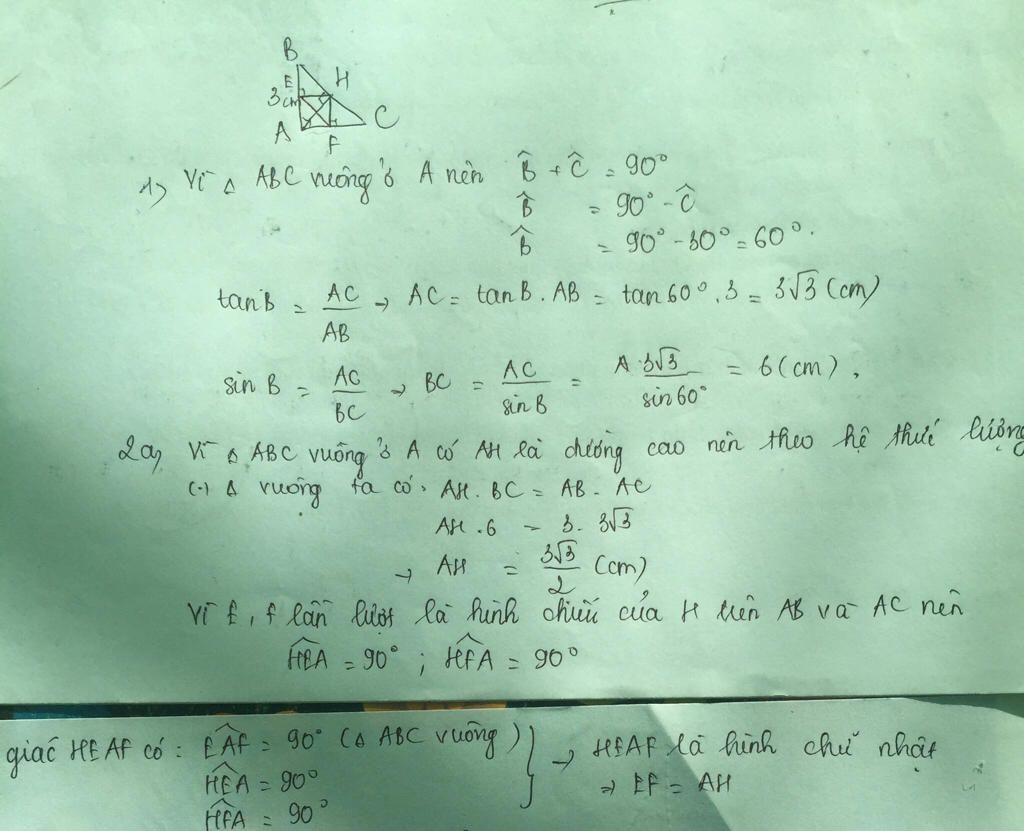 B
E
H
3cm
A
F
C
1) Vì Δ ABC vuông ở A nên B̂ + Ĉ = 90°
B̂ = 90° - Ĉ
B̂ = 90° - 30° = 60°.
tanB = AC/AB → AC = tanB . AB = tan60° . 3 = 3√3 (cm)
sin B = AC/BC → BC = AC/sinB = 3√3/sin60° = 6 (cm),
2a, Vì Δ ABC vuông ở A có AH là đường cao nên theo hệ thức lượng
(.) Δ vuông ta có. AH . BC = AB . AC
AH . 6 = 3 . 3√3
→ AH = 3√3/2 (cm)
Vì E, F lần lượt là hình chiếu của H trên AB và AC nên
HEA = 90° ; HFA = 90°
giác HEAF có : EAF = 90° (Δ ABC vuông) } → HEAF là hình chữ nhật
HEA = 90° ⇒ EF = AH
HFA = 90°